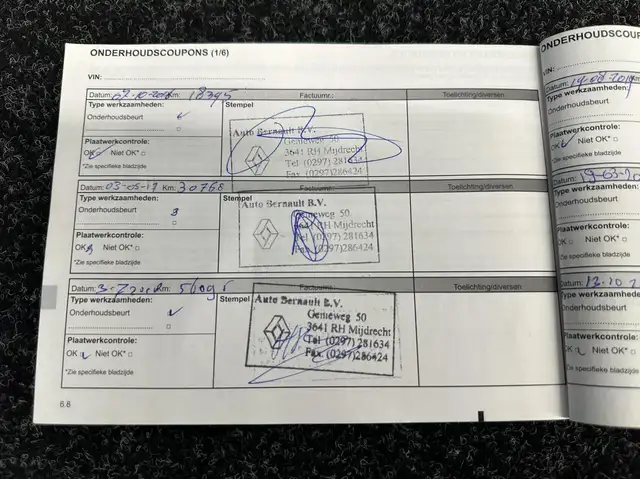 ONDERHOUDSCOUPONS (1/6)
VIN:
Datum: Km: 18395 Factuurnr.: Toelichting/diversen
Type werkzaamheden: Stempel
Onderhoudsbeurt
Plaatwerkcontrole:
OK Niet OK*
*Zie specifieke bladzijde
Auto Bernault B.V.
Genieweg 50
3641 RH Mijdrecht
Tel (0297) 281634
Fax (0297)286424
Datum: 03-05-17 Km: 30768 Factuurnr.: Toelichting/diversen
Type werkzaamheden: Stempel
Onderhoudsbeurt
Plaatwerkcontrole:
OK Niet OK*
*Zie specifieke bladzijde
Auto Bernault B.V.
Genieweg 50
3641 RH Mijdrecht
Tel (0297) 281634
Fax (0297)286424
Datum: Km: Factuurnr.: Toelichting/diversen
Type werkzaamheden: Stempel
Onderhoudsbeurt
Plaatwerkcontrole:
OK Niet OK*
*Zie specifieke bladzijde
Auto Bernault B.V.
Genieweg 50
3641 RH Mijdrecht
Tel (0297) 281634
Fax (0297)286424
6.8
VIN:
Datum:
Type werkzaamheden:
Onderhoudsbeurt
Plaatwerkcontrole:
OK Niet OK*
*Zie specifieke bladzijde
Datum:
Type werkzaamheden:
Onderhoudsbeurt
Plaatwerkcontrole:
OK Niet OK*
*Zie specifieke bladzijde
Datum:
Type werkzaamheden:
Onderhoudsbeurt
Plaatwerkcontrole:
OK Niet OK*
*Zie specifieke bladzijde